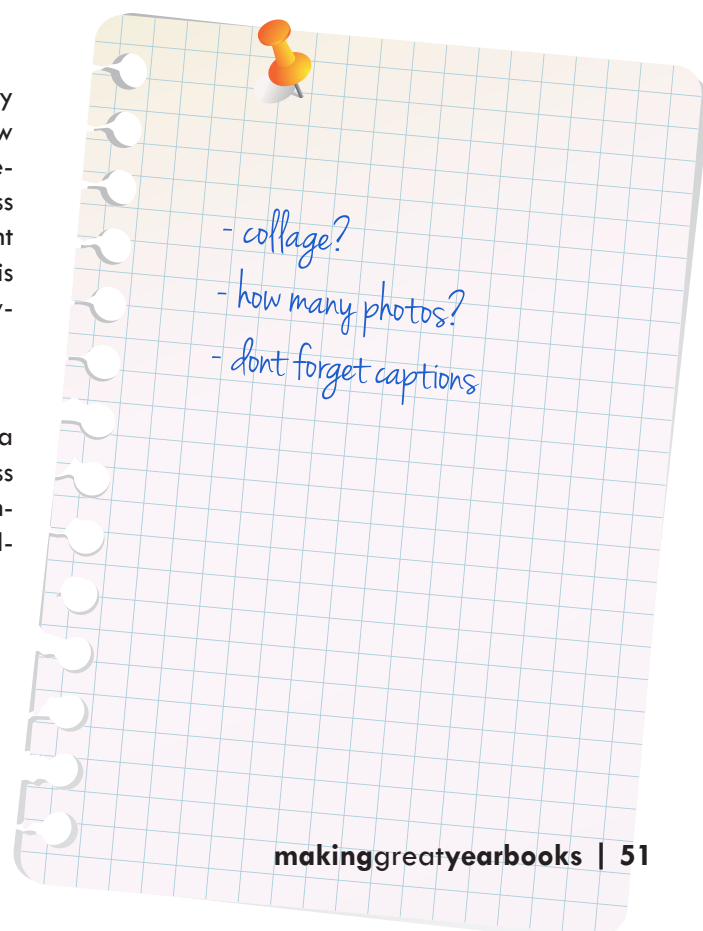 - collage?
- how many photos?
- dont forget captions
makinggreatyearbooks | 51